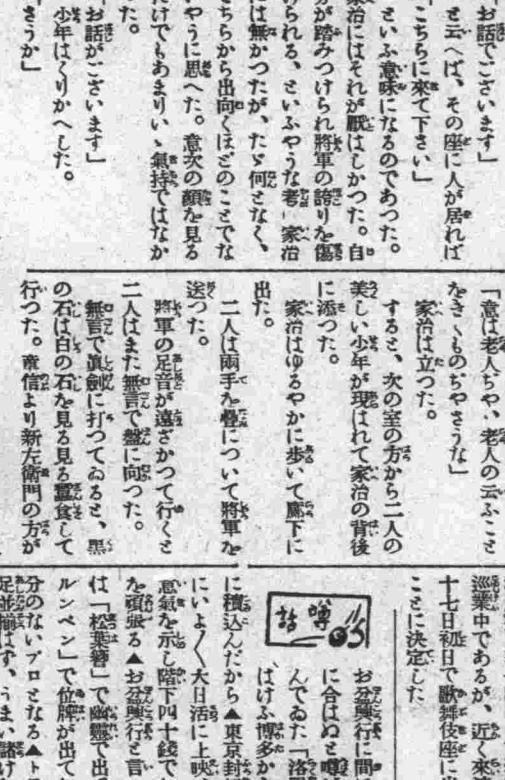 お話でございます」
と云へば、その座に人が居れば
こちらに來て下さい」
といふ意味になるのであつた。
家治にはそれが厭はしかつた。自
分が踏みつけられ將軍の誇りを傷
けられる、といふやうな考 家治
には無かつたが、たゞ何となく、
こちらから出向くほどのことでな
いやうに思へた。意次の顏を見る
だけでもあまりいゝ氣持ではなか
つた。
お話がございます」
少年はくりかへした。
さうか」
「意は老人ぢや、老人の云ふこと
をきくものぢやさうな」
家治は立つた。
すると、次の室の方から二人の
美しい少年が現はれて家治の背後
に添つた。
家治はゆるやかに歩いて廊下に
出た。
二人は兩手を疊について將軍を
送つた。
將軍の足音が遠ざかつて行くと
二人はまた無言で盤に向つた。
無言で眞劍に打つてゐると、黑
の石は白の石を見る見る蠶食して
行つた。章信より新左衛門の方が
巡業中であるが、近く來
十七日初日で歌舞伎座に
ことに決定した
噂話
お盆興行に間
に合はぬと噂
んでゐた「洛
はけふ博多か
に積込んだから▲東京封
にいよ〱大日活に上映
意氣を示し階下四十錢で
を頑張る▲お盆興行と言
は「松葉簪」で幽靈で出
ルンペン」で位牌が出て
分のないプロとなる▲ト
足並揃はず、うまい儲け